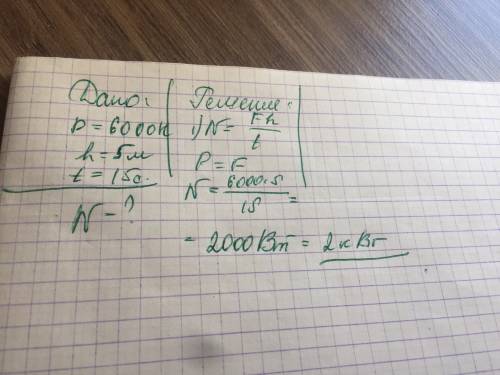 Дано:
P = 6000Н
h = 5м
t = 15с.
N - ?
Решение:
1) N = Fh/t
P = F
N = 6000·5/15 =
= 2000Вт = 2кВт